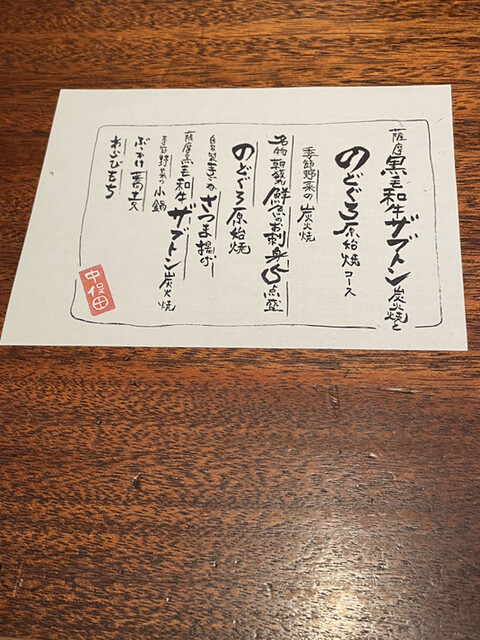 薩摩黒毛和牛ザブトン炭火焼と
のどぐろ原始焼コース
季節野菜の炭火焼
名物朝〆鮮魚のお刺身5点盛
のどぐろ原始焼
自家製手ごねさつま揚げ
薩摩黒毛和牛ザブトン炭火焼
季節野菜の小鍋
ぶっかけ蕎麦
わらびもち
中俣田